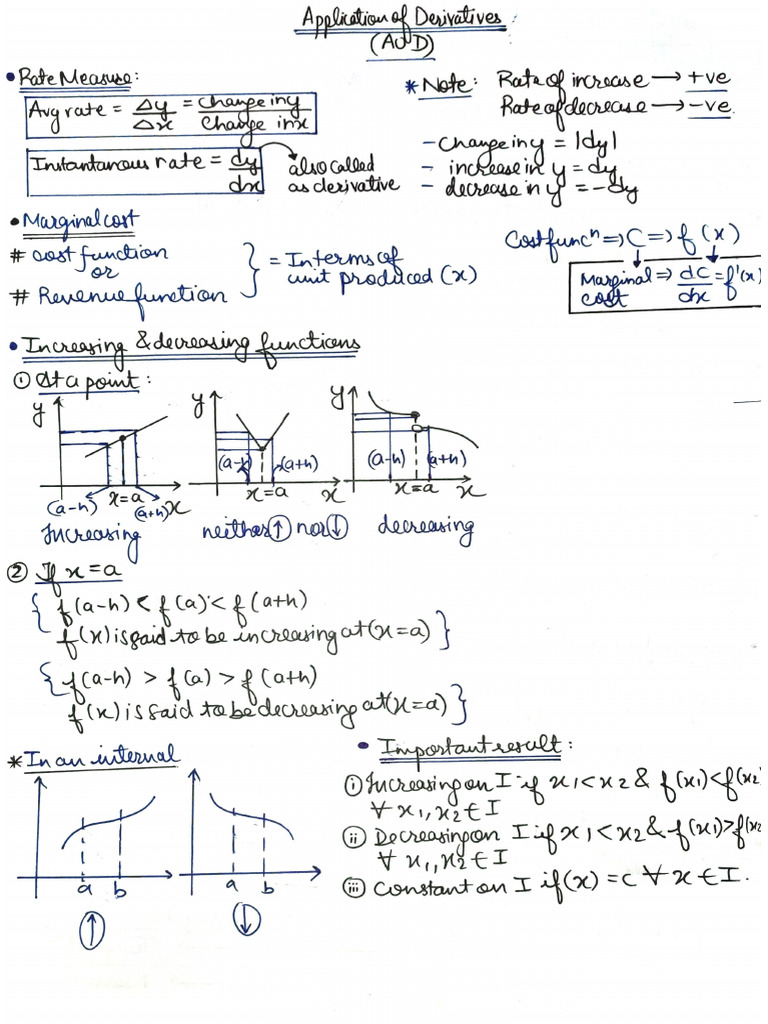 Application of Derivatives
(AOD)
• Rate Measure:
Avg rate = Δy/Δx = change in y/Change in x
Instantanous rate = dy/dx → also called as derivative
* Note: Rate of increase → +ve
Rate of decrease → -ve.
- change in y = |dy|
- increase in y = dy
- decrease in y = -dy
• Marginal cost
# cost function
or
# Revenue function
} = Interms of
unit produced (x)
Cost funcⁿ ⇒ C ⇒ f(x)
Marginal cost ⇒ dC/dx = f'(x)
• Increasing & decreasing functions
① At a point:
y
(a-h) x=a (a+h) x
Increasing
y
(a-h) (a+h)
x=a x
neither ↑ nor ↓
y
(a-h) (a+h)
x=a x
decreasing
② If x=a
{ f(a-h) < f(a) < f(a+h)
f(x) is said to be increasing at (x=a) }
{ f(a-h) > f(a) > f(a+h)
f(x) is said to be decreasing at (x=a) }
* In an internal
a b
↑
a b
↓
• Important result:
(i) Increasing on I if x₁<x₂ & f(x₁)<f(x₂
∀ x₁,x₂ ∈ I
(ii) Decreasing on I if x₁<x₂ & f(x₁)>f(x₂
∀ x₁,x₂ ∈ I
(iii) Constant on I if(x) = c ∀ x ∈ I.